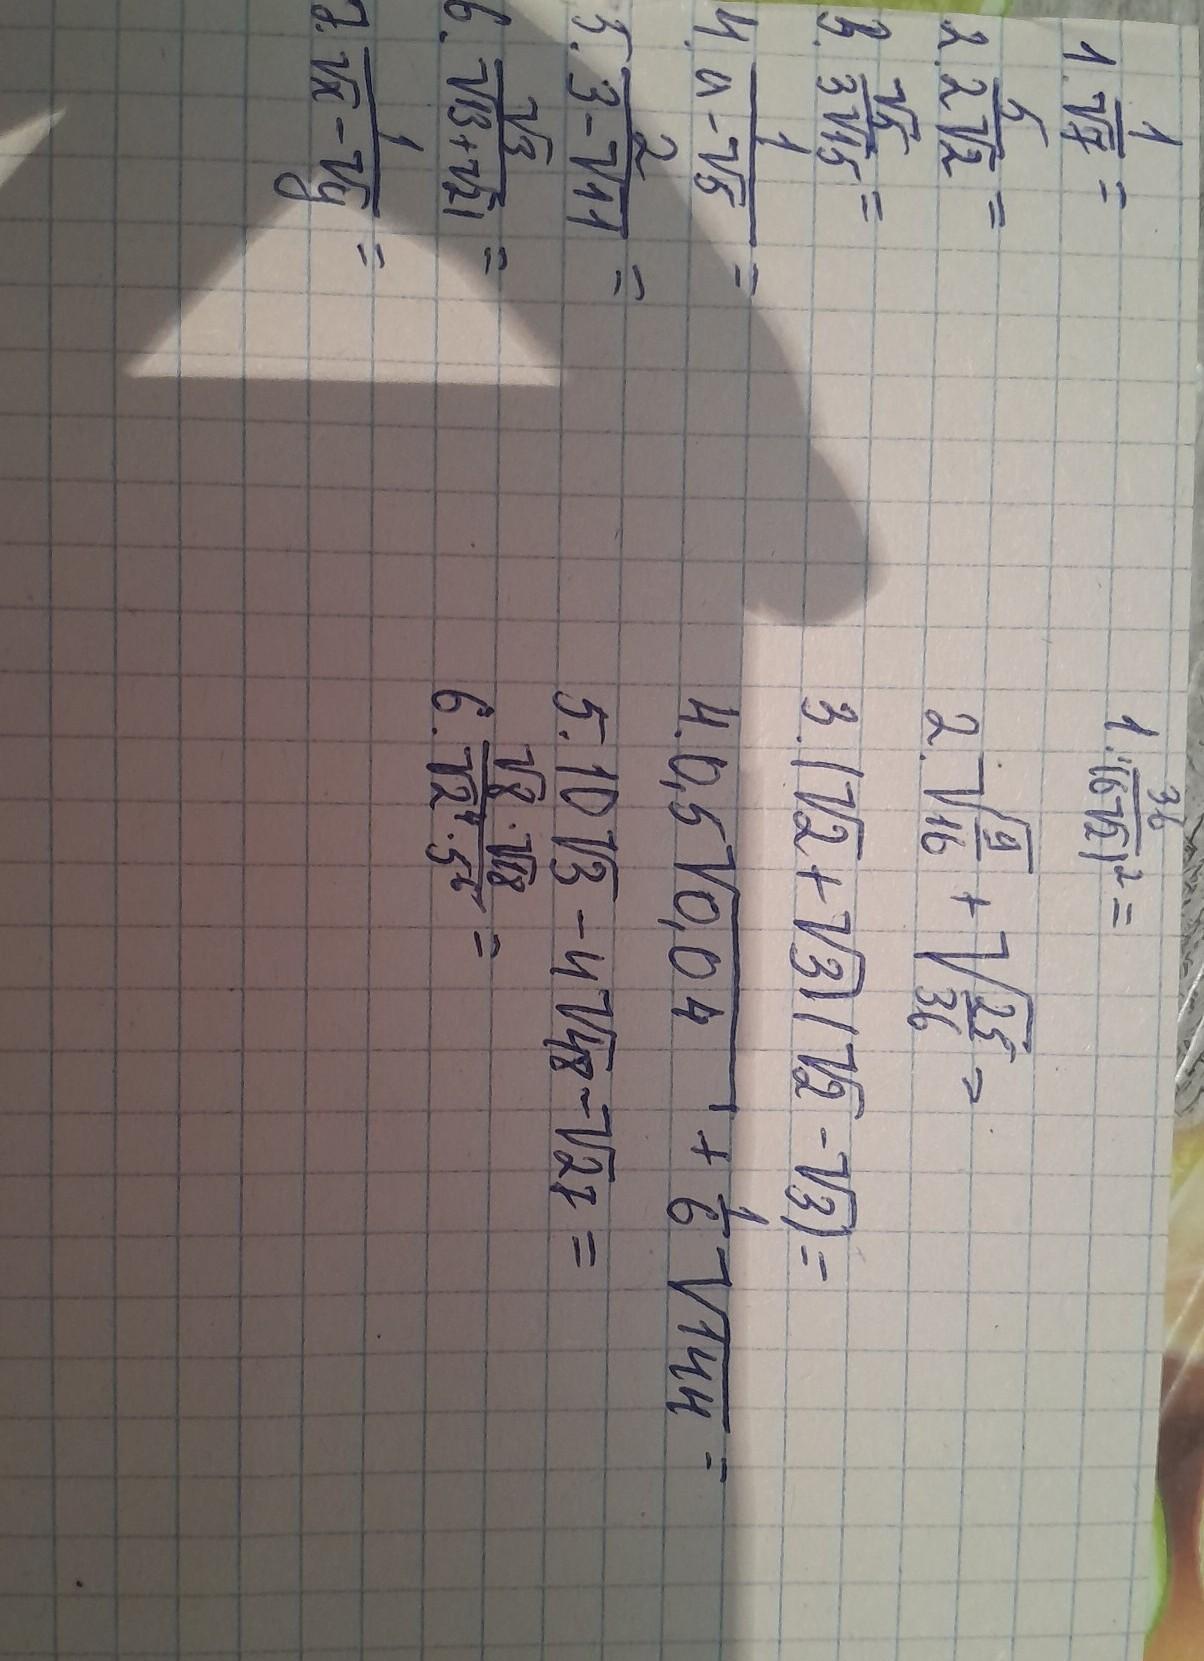 1. 1/√7 =
2. 5/2√2 =
3. √5/3√15 =
4. 1/a-√5 =
5. 2/3-√11 =
6. √3/√13+√21 =
7. 1/√x-√y =
1. 36/(6√2)² =
2. √9/16 + √25/36 =
3. (√2+√3)(√2-√3) =
4. 0,5√0,04 + 1/6√144 =
5. 10√3-4√48-√27 =
6. √8·√18/√2⁴·5² =